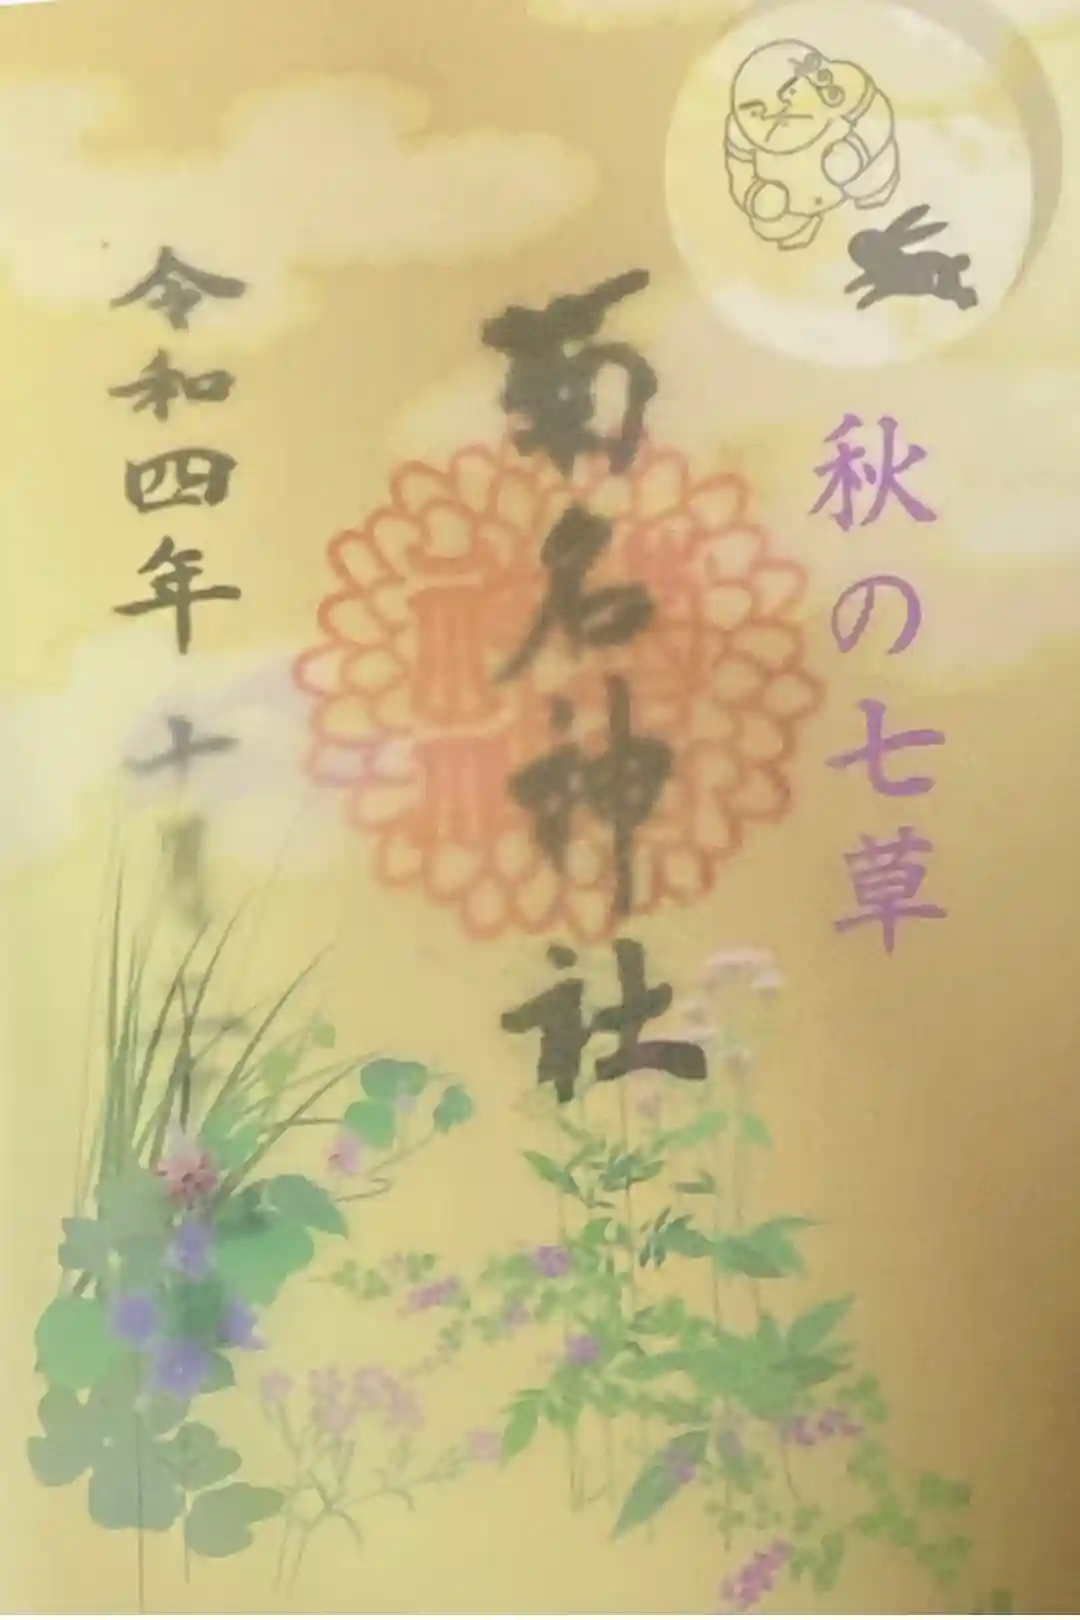 秋の七草
菊名神社
令和四年 十月